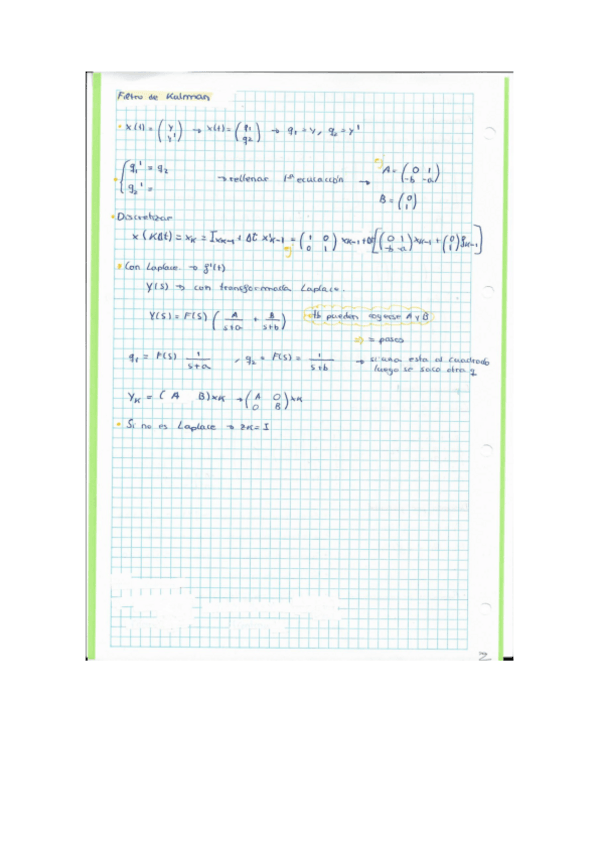 Filtro de Kalman
x(t) = (y y') → x(t) = (q1 q2) → q1 = y, q2 = y'
{q1' = q2 → rellenar 1ª ecuación → A = (0 1 -b -a)
q2' = B = (0 1)
Discretizar
x(KΔt) = xK = I xK-1 + Δt x'K-1 = (1 0 0 1) xK-1 + Δt [(0 1 -b -a) xK-1 + (0 1) fK-1]
Con Laplace →
Y(s) → con transformada Laplace.
Y(s) = F(s) (A/(s+a) + B/(s+b)) tb pueden cogerse A y B
= pasos
q1 = F(s) 1/(s+a) , q2 = F(s) = 1/(s+b) → si una esta al cuadrado
luego se saca otra q
YK = (A B) xK → (A 0 0 B) xK
Si no es Laplace → zK = I
2